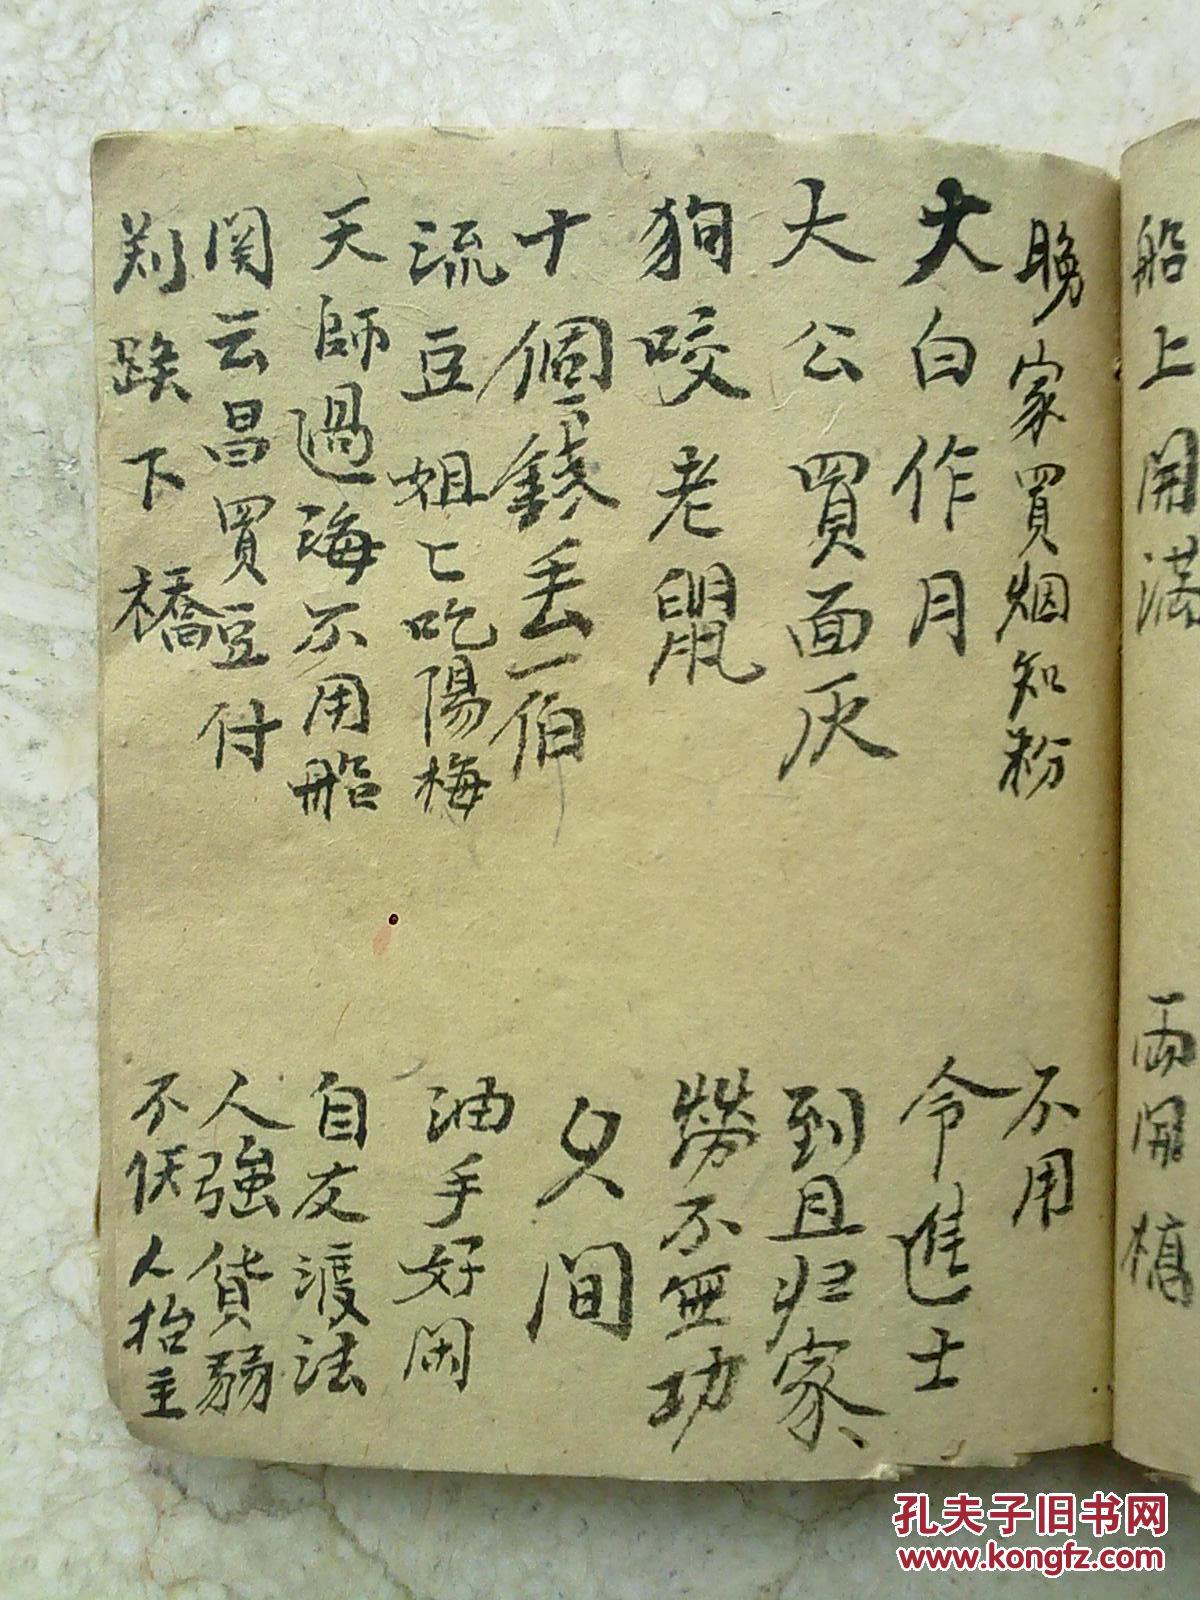 船上開满 両開槁
晚家買烟知粉 不用
大白作月 令進士
大公買面灰 到且归家
狗咬老鼠 勞不無功
十個錢丢一伯 久间
流豆姐匕吃陽梅 油手好闲
天師過海不用船 自友渡法
関云昌買豆付 人強貨弱
刘跌下橋 不伏人抬主
孔夫子旧书网
www.kongfz.com